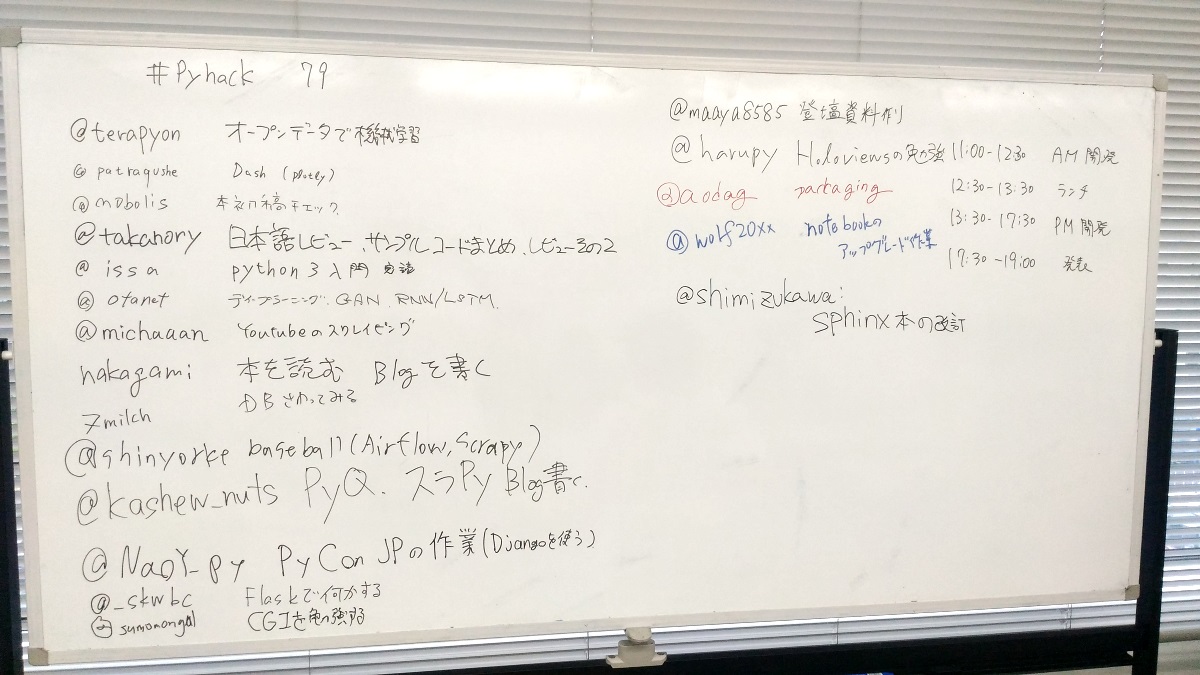 #Pyhack 79
@terapyon オープンデータで機械学習
@patraqushe Dash (plotly)
@mobolis 本初稿チェック
@takanory 日本語レビュー、サンプルコードまとめ、レビューその2
@issa python3入門
@otanet ディープラーニング、GAN、RNN/LSTM
@michaaan Youtubeのスクレイピング
nakagami 本を読む Blogを書く
7milch DBさわってみる
@shinyorke baseball(Airflow, Scrapy)
@kashew_nuts PyQ、スラPy Blog書く
@NaoY_py PyCon JPの作業(Djangoを使う)
@_skwbc Flaskで何かする
@sumomongal CGIを勉強する
@maaya8585 登壇資料作り
@harupy Holoviewsの勉強
@aodag packaging
@wolf20xx notebookの
アップグレード作業
@shimizukawa:
sphinx本の改訂
11:00-12:30 AM開発
12:30-13:30 ランチ
13:30-17:30 PM開発
17:30-19:00 発表